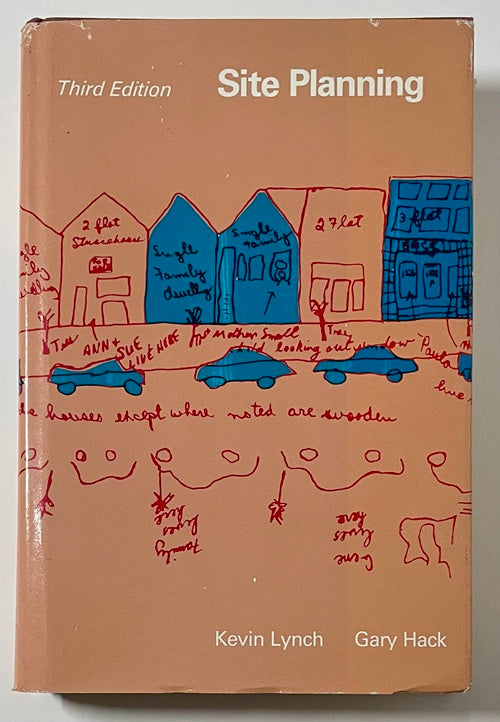 Third Edition
Site Planning
2 flat
Storehouse
For sale
Single
Family
dwelling
Single
Family
2 Flat
3 flat
BACK
Tree
ANN +
SUE
LIVE HERE
Mother Small
child looking out window
Tree
Paula
houses except where noted are wooden
Family
lives
here
Gene
lives
here
Kevin Lynch
Gary Hack